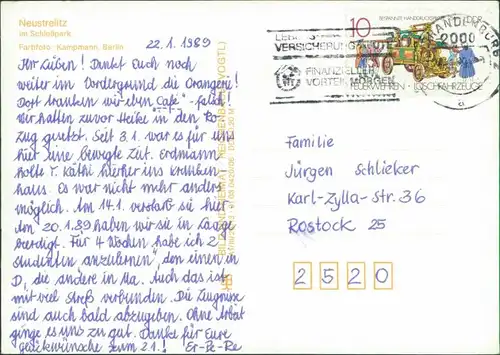 Neustrelitz
im Schloßpark
Farbfoto: Kampmann, Berlin
22.1.1989
Ihr Lieben! Denkt Euch noch
weiter im Vordergrund die Orangerie!
Dort tranken wir eben Café
Wir hatten zuvor Heike in den
Zug gesetzt. Seit 3.1. war es für uns
hier eine bewegte Zeit. Erdmann
holte T. Käthi hierher ins Kranken
haus. Es war nicht mehr anders
möglich. Am 14.1. verstarb sie hier
Am 20.1.89 haben wir sie in Laage
beerdigt. Für 4 Wochen habe ich 2
Studenten anzulernen, den einen in
D, die andere in Ma. Auch das ist
mit viel Streß verbunden. Die Zeugnisse
sind auch bald abzugeben. Ohne Arbeit
ginge es uns zu gut. Danke für Eure
Glückwünsche zum 2.1.! Er-Pe-Re
VERSICHERUNG
FINANZIELLER
VORTEIL MORGEN
10
BESPANNTE HANDDRUCKSPRITZE
FEUERWEHREN - LÖSCHFAHRZEUGE
2000
Familie
Jürgen Schlieker
Karl-Zylla-Str. 36
Rostock 25
2520